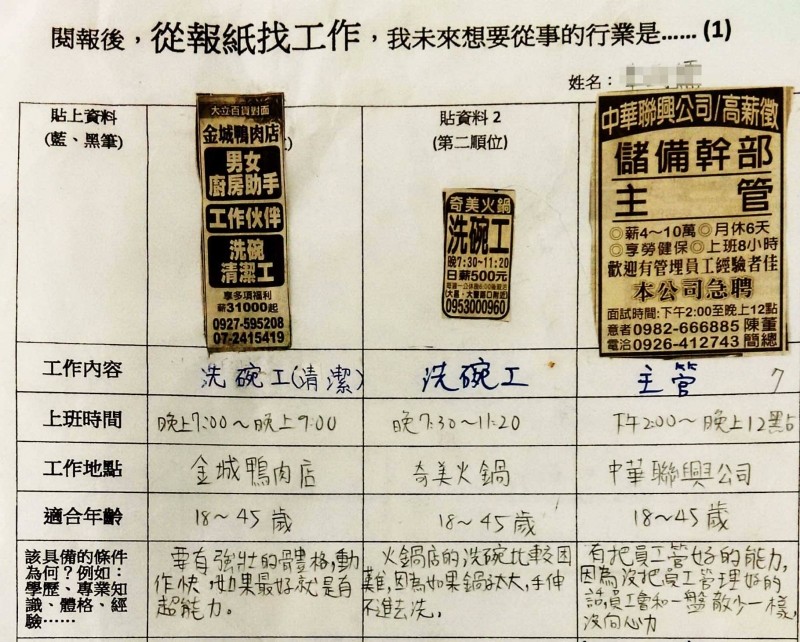 閱報後,從報紙找工作,我未來想要從事的行業是……(1)
姓名:
貼上資料
(藍、黑筆)
大立百貨對面
金城鴨肉店
男女
廚房助手
工作伙伴
洗碗
清潔工
享多項福利
薪31000起
0927-595208
07-2415419
貼資料2
(第二順位)
奇美火鍋
洗碗工
晚7:30~11:20
日薪500元
0953000960
中華聯興公司/高薪徵
儲備幹部
主管
◎薪4~10萬◎月休6天
◎享勞健保◎上班8小時
歡迎有管理員工經驗者佳
本公司急聘
面試時間:下午2:00至晚上12點
意者0982-666885陳董
電洽0926-412743簡總
工作內容
洗碗工(清潔)
洗碗工
主管
7
上班時間
晚上7:00~晚上9:00
晚7:30~11:20
下午2:00~晚上12點
工作地點
金城鴨肉店
奇美火鍋
中華聯興公司
適合年齡
18~45歲
18~45歲
18~45歲
該具備的條件
為何?例如:
學歷、專業知
識、體格、經
驗……
要有強壯的體格,動
作快,如果最好就是有
超能力。
火鍋店的洗碗比較困
難,因為如果鍋太大,手伸
不進去洗。
有把員工管好的能力,
因為沒把員工管理好的
話,員工會和一盤散沙一樣,
沒向心力